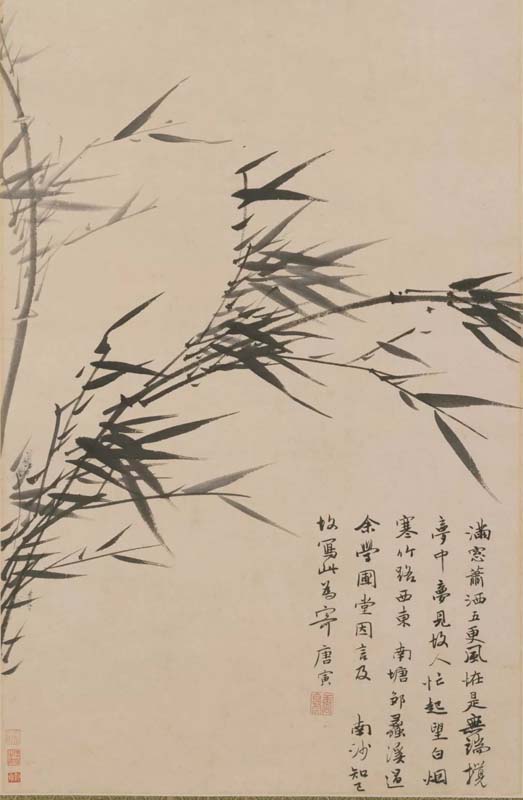 滿窓蕭洒五更風恠是無端攪
夢中夢見故人忙起望白烟
寒竹路西東 南塘邵蠡溪過
余學圃堂因言及 南沙知己
故寫此為寄 唐寅